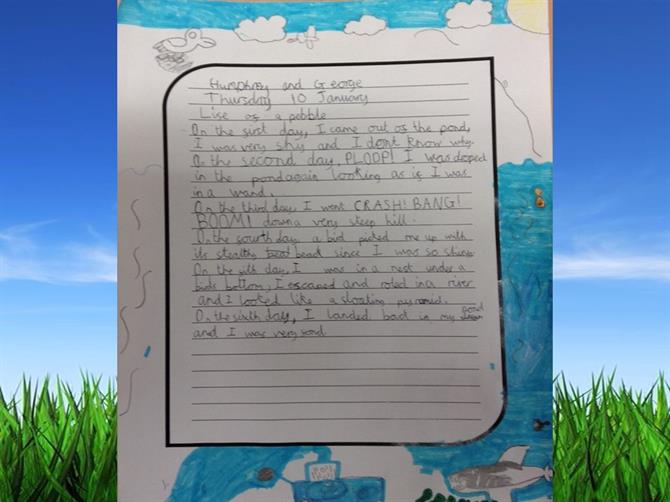 Humphrey and George
Thursday 10 January
Life of a pebble
On the first day, I came out of the pond,
I was very shy and I dont know why.
On the second day, PLOOP! I was droped
in the pond again looking as if I was
in a wand.
On the third day I went CRASH! BANG!
BOOM! down a very steep hill.
On the fourth day a bird picked me up with
its stealthy beak since I was so shiny
On the fith day, I was in a nest under a
birds bottom, I escaped and roled in a river
and I looked like a floating pyramid.
On the sixth day, I landed back in my pond
and I was very fond